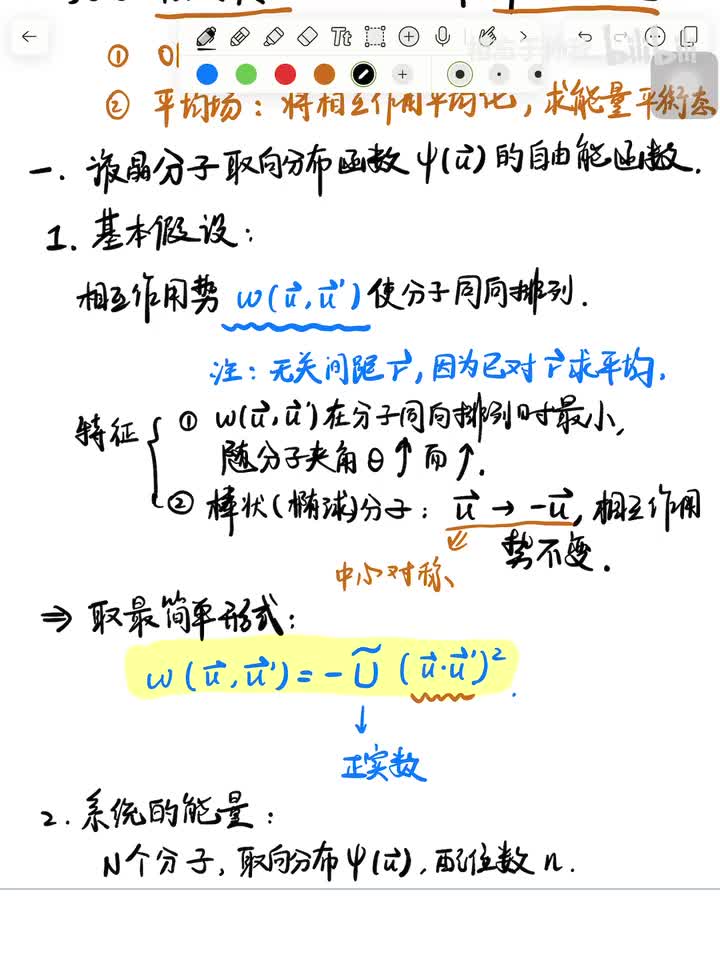 Tt
bilibili
①
② 平均场：将相互作用平均化，求能量平衡态
一. 液晶分子取向分布函数 ψ(u⃗) 的自由能函数.
1. 基本假设：
相互作用势 w(u⃗,u⃗') 使分子同向排列.
注：无关间距 r⃗, 因为已对 r⃗ 求平均.
特征 { ① w(u⃗,u⃗') 在分子同向排列时最小,
随分子夹角 θ↑ 而↑.
② 棒状(椭球)分子：u⃗ → -u⃗, 相互作用
势不变.
中心对称
⇒ 取最简单形式：
w(u⃗,u⃗') = -Ũ (u⃗·u⃗')².
↓
正实数
2. 系统的能量：
N个分子, 取向分布 ψ(u⃗), 配位数 n.